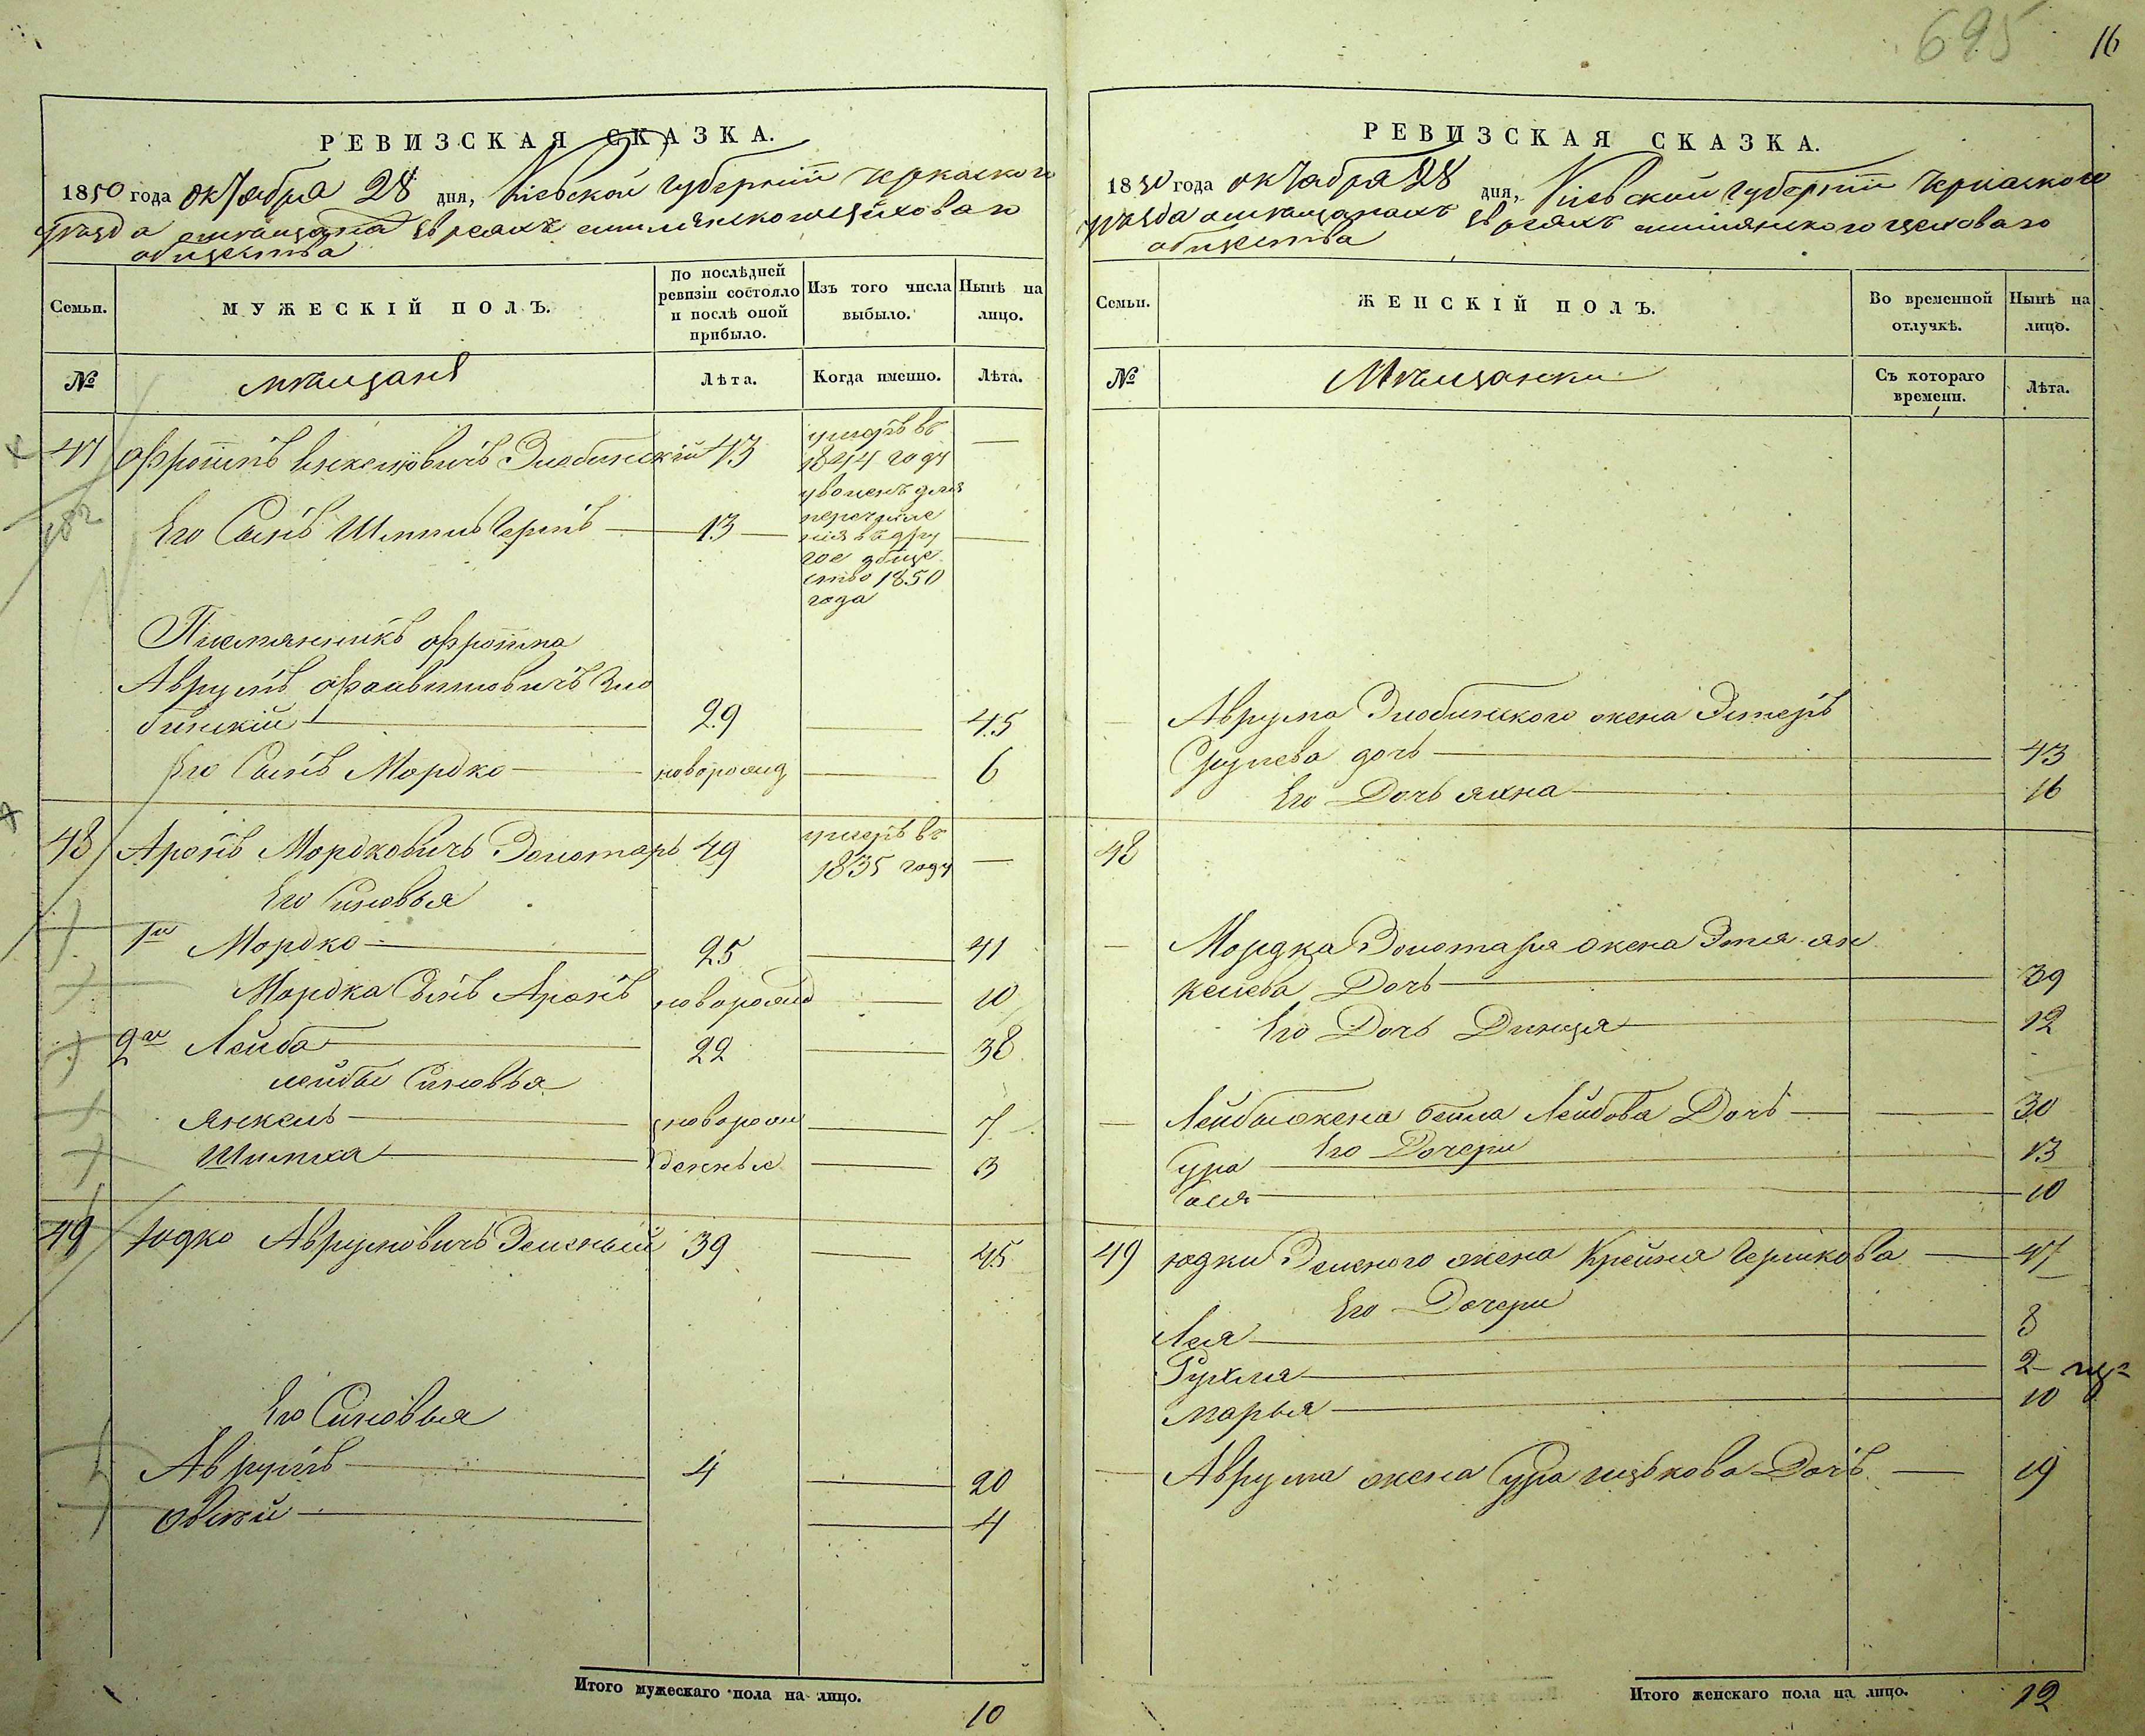 695 16
РЕВИЗСКАЯ СКАЗКА.
1850 года октября 28 дня, Кіевской губерніи черкаского
уѣзда о мѣщанах евреяхъ смилянского цехового
общества
Семьи.
МУЖЕСКІЙ ПОЛЪ.
По послѣдней ревизіи состояло и послѣ оной прибыло.
Изъ того числа выбыло.
Нынѣ на лицо.
№
мѣщане
Лѣта.
Когда именно.
Лѣта.
47 Фроимъ Янкелювичъ Злобинскій 43 умеръ въ 1844 году —
Его Сынъ Шмиль Гершъ — 13 — уволенъ для перечисленія въ другое общество 1850 года —
Племянникъ Фроима
Аврумъ Злобинскій — 29 — 45
Его Сынъ Мордко — новорожд — 6
48 Аронъ Мордковичъ Золотарь 49 умеръ въ 1835 году —
Его Сыновья
1й Мордко — 25 — 41
Мордка Сынъ Аронъ новорожд — 10
2й Лейба — 22 — 38
лейбы Сыновья
Янкель — новорож — 7
Шимха — денные — 3
49 Юдко Аврумовичъ Зеленый 39 — 45
Его Сыновья
Аврумъ — 4 — 20
Овсей — — 4
Итого мужескаго пола на лицо.
10
РЕВИЗСКАЯ СКАЗКА.
1850 года октября 28 дня, Кіевской губерніи Черкаского
уѣзда о мѣщанахъ евреяхъ смилянского цехового
общества
Семьи.
ЖЕНСКІЙ ПОЛЪ.
Во временной отлучкѣ.
Нынѣ на лицо.
№
Мѣщанки
Съ котораго времени.
Лѣта.
— Аврума Злобинского жена Эстеръ
Срулева дочь — 43
Его Дочь Яхна — 16
48
— Мордка Золотаря жена Этля Ян
келева Дочь — 39
Его Дочь Динця — 12
— Лейбы жена бейла Лейбова Дочь — 30
Его Дочери
Сура — 13
Хася — 10
49 Юдки Зеленого жена Крейня Гершкова — 47
Его Дочери
Лея — 8
Рухля — 2
Марья — 10
— Аврума жена Сура ицькова Дочь — 19
Итого женскаго пола на лицо.
12